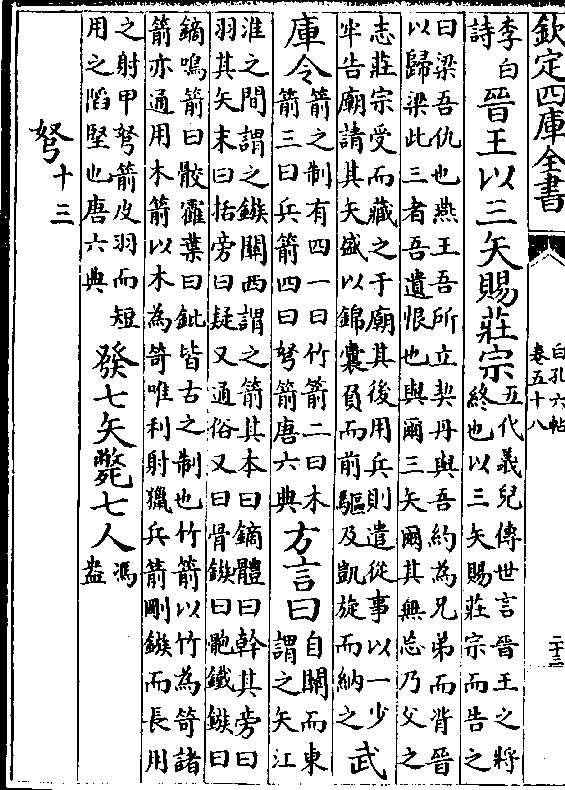 欽定四庫全書
白孔六帖
卷五十八
二十三
李白
詩
晉王以三矢賜莊宗
五代義兒傳世言晉王之將
終也以三矢賜莊宗而告之
曰梁吾仇也燕王吾所立契丹與吾約為兄弟而背晉
以歸梁此三者吾遺恨也與爾三矢爾其無忘乃父之
志莊宗受而藏之于廟其後用兵則遣從事以一少
牢告廟請其矢盛以錦囊負而前驅及凱旋而納之
武
庫令
箭之制有四一曰竹箭二曰木
箭三曰兵箭四曰弩箭唐六典
方言曰
自關而東
謂之矢江
淮之間謂之鏃關西謂之箭其本曰鏑體曰幹其旁曰
羽其矢末曰括旁曰疑又通俗又曰骨鏃曰骲鐵鏃曰
鏑鳴箭曰骹霍葉曰鈚皆古之制也竹箭以竹為笴諸
箭亦通用木箭以木為笴唯利射獵兵箭剛鏃而長用
之射甲弩箭皮羽而短
用之陷堅也唐六典
發七矢斃七人
馮
盎
弩十三